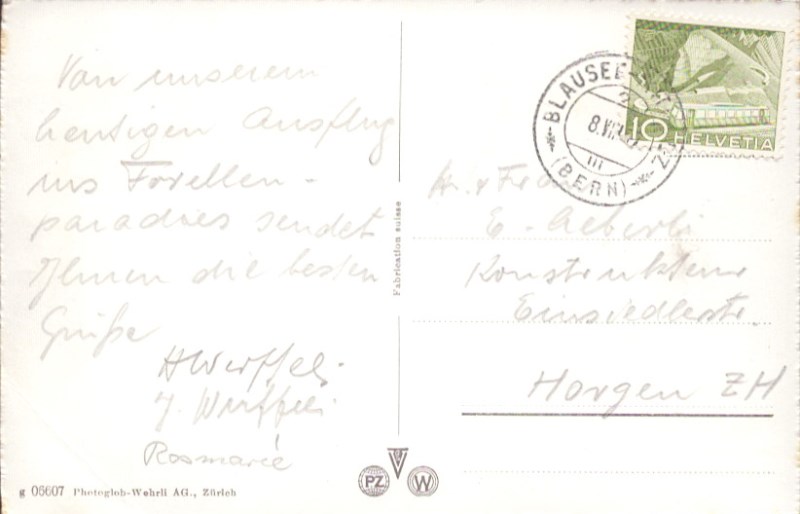 Von unserem
heutigen Ausflug
ins Forellen-
paradies sendet
Ihnen die besten
Grüße
HWerffeli
J. Werffeli
Rosmarie
g 05607 Photoglob-Wehrli AG., Zürich
Fabrication suisse
PZ
W
BLAUSEE
8.VII
III
(BERN)
10 HELVETIA
H. + Frau
E. Aeberli
Konstrukteur
Einsiedlerstr.
Horgen ZH